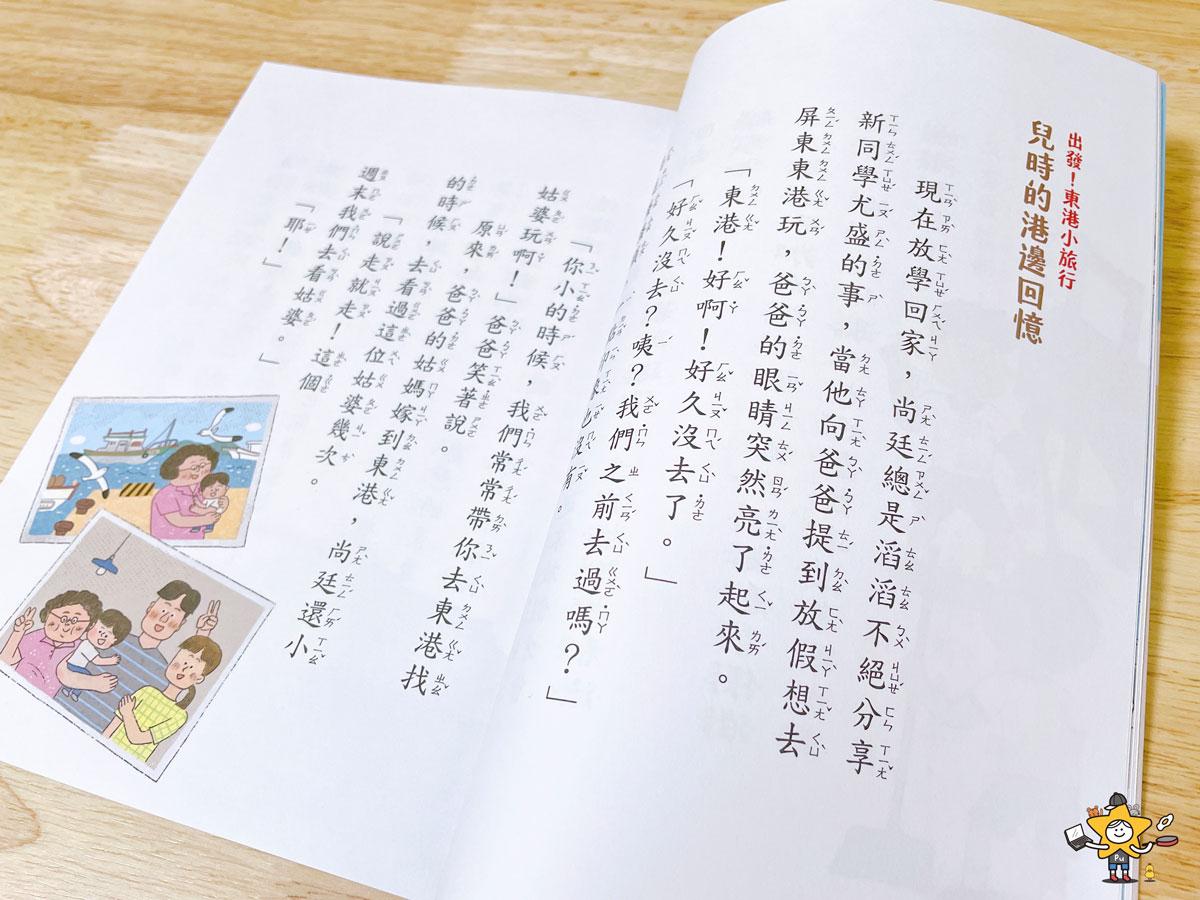 出發！東港小旅行
兒時的港邊回憶
現在放學回家，尚廷總是滔滔不絕分享
新同學尤盛的事，當他向爸爸提到放假想去
屏東東港玩，爸爸的眼睛突然亮了起來。
「東港！好啊！好久沒去了。」
「好久沒去？咦？我們之前去過嗎？」
也沒有。
「你小的時候，我們常常帶你去東港找
姑婆玩啊！」爸爸笑著說。
原來，爸爸的姑媽嫁到東港，尚廷還小
的時候，去看過這位姑婆幾次。
「說走就走！這個
週末我們去看姑婆。」
「耶！」
Pu